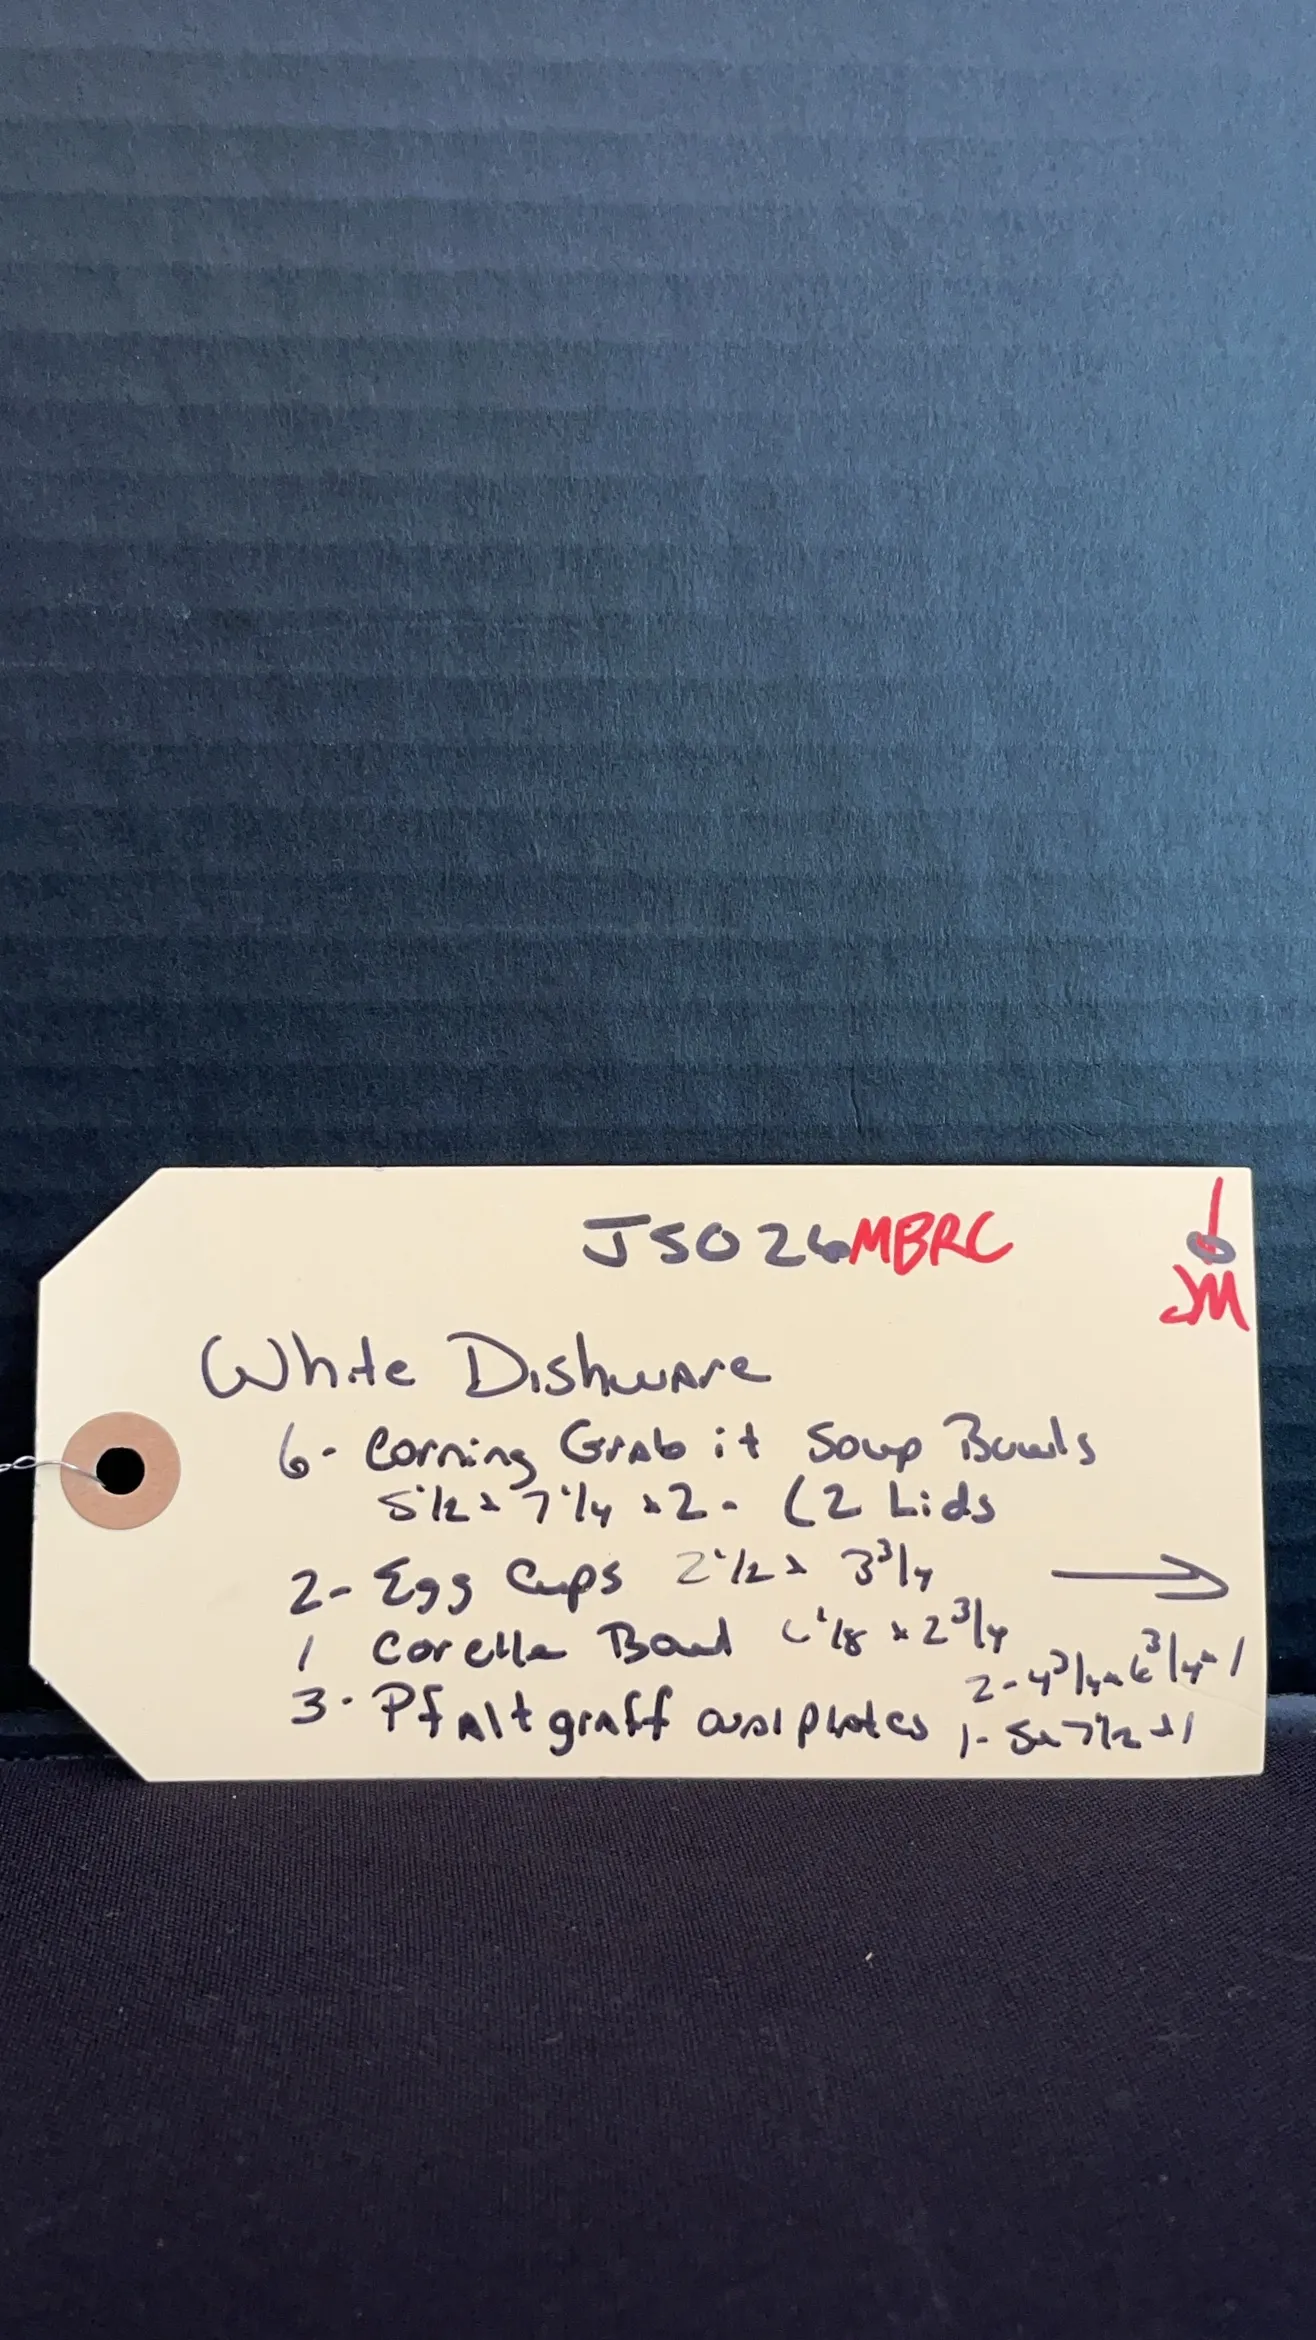 JS026MBRC
JM
White Dishware
6- Corning Grab it Soup Bowls
5 1/2 x 7 1/4 x 2 - (2 Lids
2- Egg Cups 2 1/2 x 3 3/4 →
1 Corelle Bowl 6 1/8 x 2 3/4
2- 4 3/4 x 6 3/4 x 1
3- Pfaltgraff oval plates 1- 5 x 7 1/2 x 1